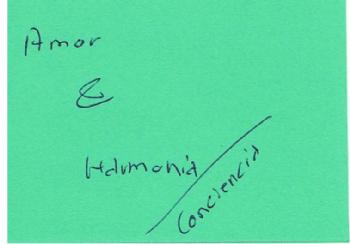 Amor
&
Harmonia
Conciencia